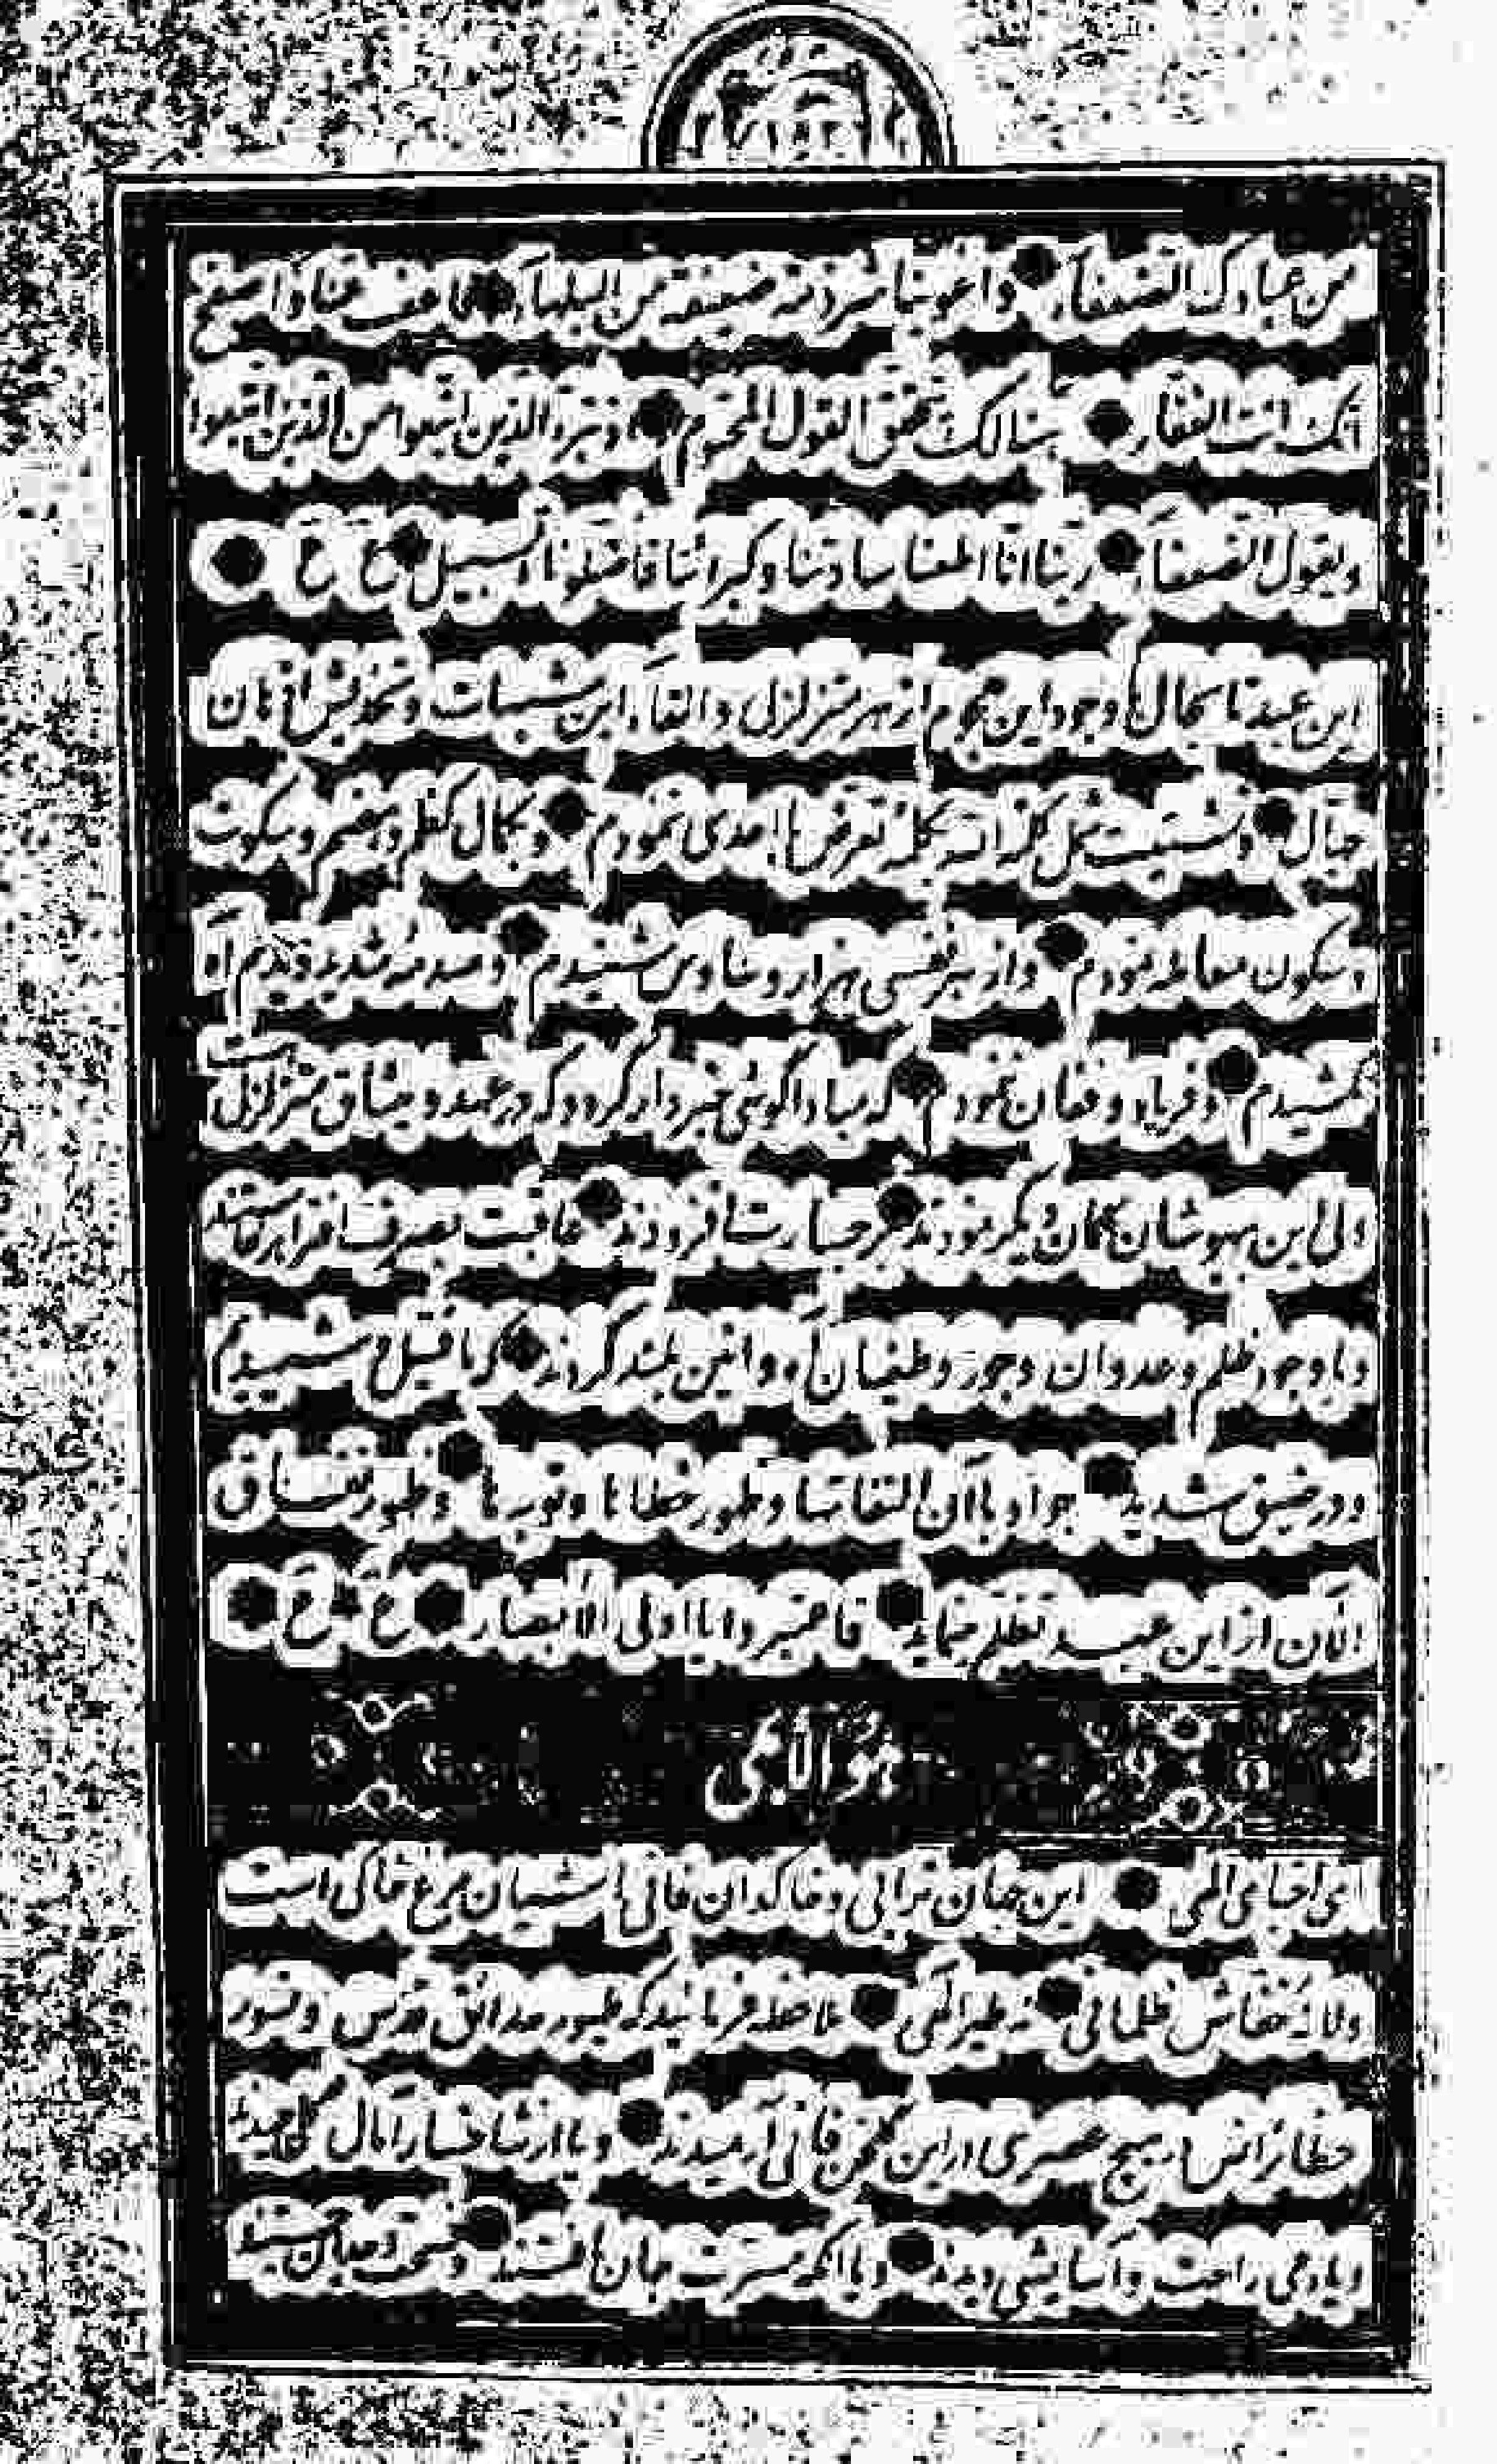 من عبادک الضعفاء واغوینا شرذمة ضعیفة من البلهاء فاعف عنا واصفح
انک انت الغفار هنالک یحق القول المحتوم وتبرء الذین اتبعوا من الذین اتبعوا
ویقول الضعفاء ربنا انا اطعنا سادتنا وکبرائنا فاضلونا السبیل ع ع
این عبد تا بحال با وجود این هجوم از هر متزلزلی والقاء این شبهات وتخدیش اذهان
جهال وتشتیت شمل کلمة الله کلمه تعرض باحدی ننمودم وبکمال کظم وهضم وسکوت
وسکون معامله نمودم واز هر نفسی هزار وساوس شنیدم وصدمه شدید دیدم آه
نکشیدم وفریاد وفغان ننمودم که مبادا گوشی خبردار گردد که در عهد ومیثاق متزلزلی است
ولی این بیهوشان گمان دیگر نمودند بر جسارت افزودند عاقبت بصرف افترا برخاستند
وبا وجود ظلم وعدوان وجور وطغیان آه وانین بلند کردند که ما قتیل شهیدیم
ودر ضیق شدید جواد با آن التفاتها وظهور خطاها وتوبه ها وظهور نفاق
الآن از این عبد تظلم مینماید فاعتبروا یا اولی الابصار ع ع
هو الابهی
ای احبای الهی این جهان ترابی وخاکدان فانی آشیان مرغ خاکی است
ولانه خفاش ظلمانی نه طیر الهی ملاحظه فرمائید که طیور حدائق قدس ونسور
حظائر انس در هیچ عصری در این گلخن فانی آرمیدند ویا از شاخسار آمال گل چیدند
ویا دمی راحت وآسایشی دیدند ویا آنکه مسرت جان یافتند